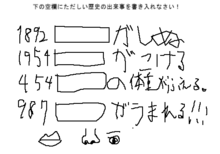 下の空欄にただしい歴史の出来事を書き入れなさい!
1892 がしぬ
1954 がこける
454 の体重がふえる。
987 がうまれる!!!